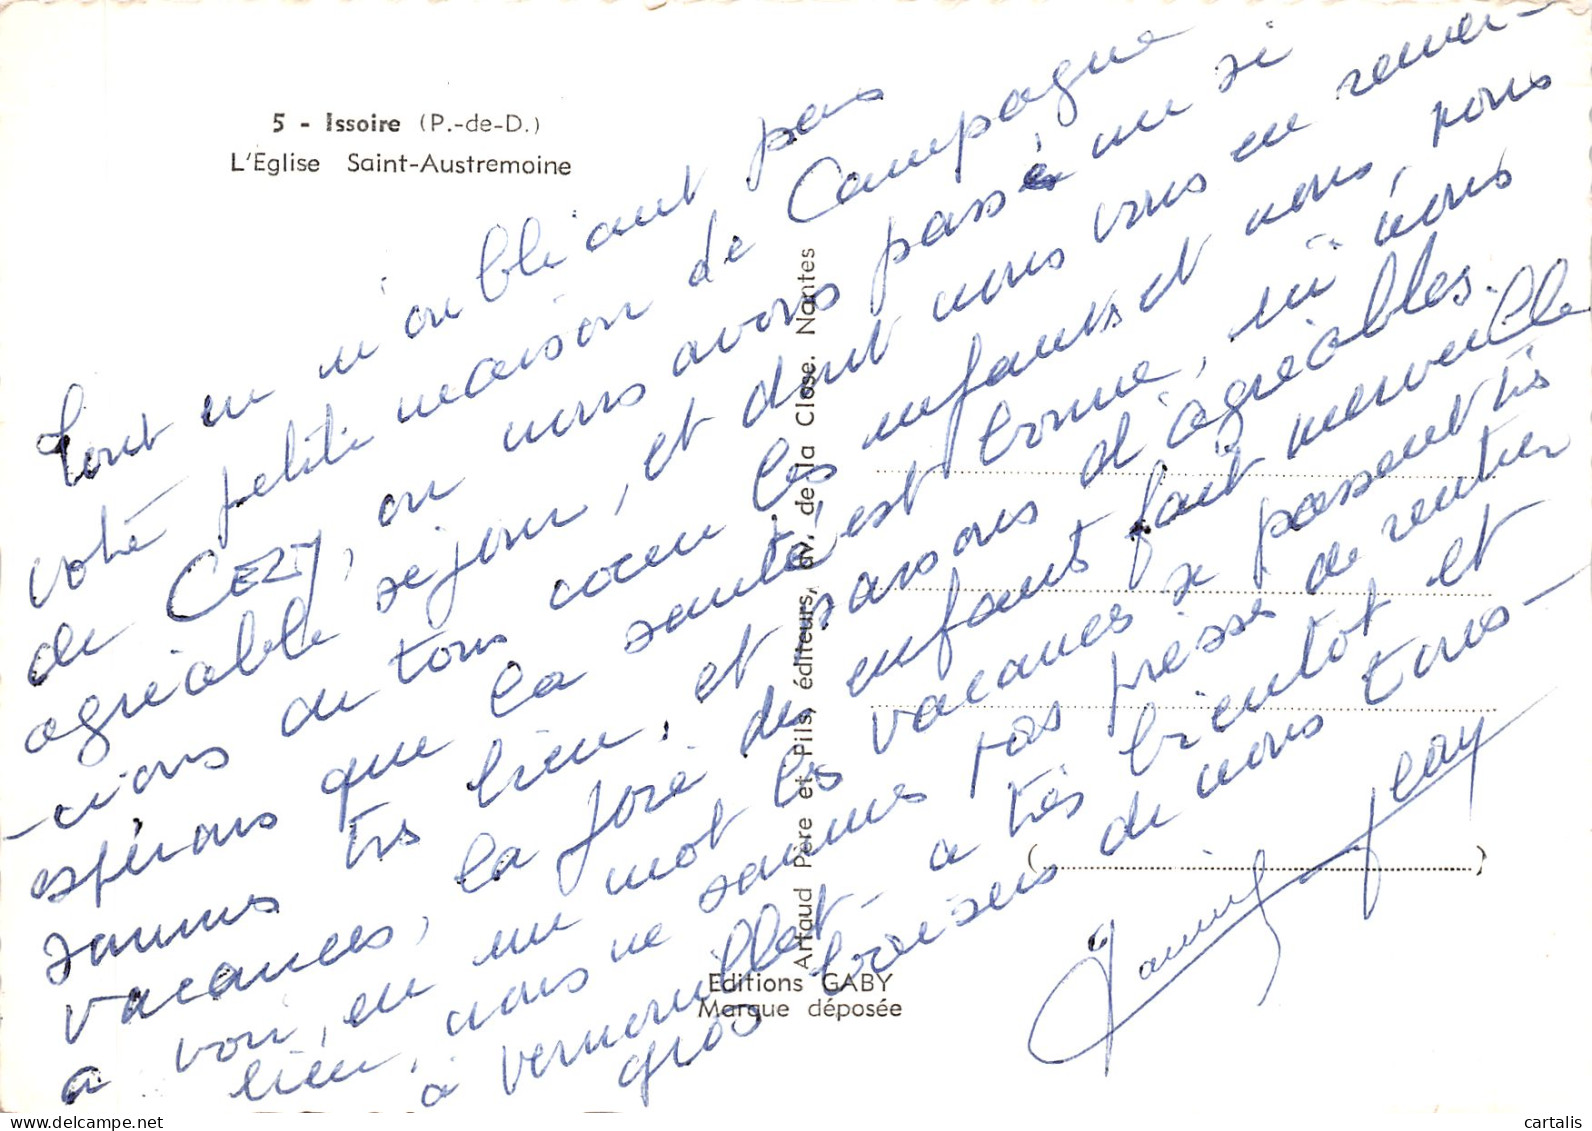 5 - Issoire (P.-de-D.)
L'Eglise Saint-Austremoine
Tout en n'oubliant pas
votre petite maison de Campagne
de CEZY, ou nous avons passé un si
agréable séjour, et dont nous vous en remer-
-cions de tous coeur les enfants et nous, nous
espérons que la santé est bonne, ici nous
sommes très bien, et passons d'agréables
vacances, la joie des enfants fait merveille
a voir, en un mot les vacances se passent très
bien, nous ne sommes pas pressés de rentrer
à vernouillet - a très bientot et
gros baisers de nous tous -
Jean
Artaud Père et Fils, éditeurs, av. de la Close. Nantes
Editions GABY
Marque déposée
( )
cartalis